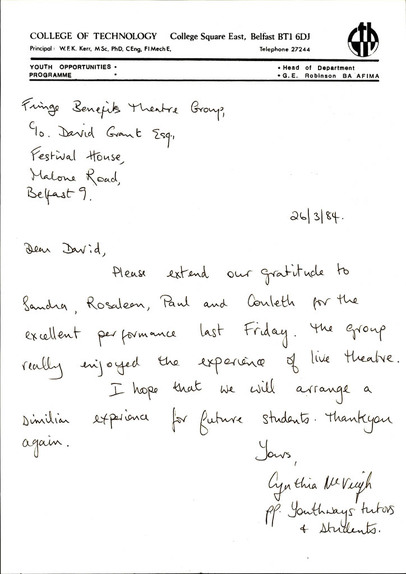 COLLEGE OF TECHNOLOGY College Square East, Belfast BT1 6DJ
Principal: W.F.K. Kerr, M Sc, PhD, CEng, FI Mech E, Telephone 27244
YOUTH OPPORTUNITIES • • Head of Department
PROGRAMME • • G. E. Robinson BA AFIMA
Fringe Benefits Theatre Group,
C/o. David Grant Esq,
Festival House,
Malone Road,
Belfast 9.
26/3/84.
Dear David,
Please extend our gratitude to
Sandra, Rosaleen, Paul and Conleth for the
excellent performance last Friday. The group
really enjoyed the experience of live theatre.
I hope that we will arrange a
similian experience for future students. Thankyou
again.
Yours,
Cynthia McVeigh
pp. Youthways tutors
& Students.